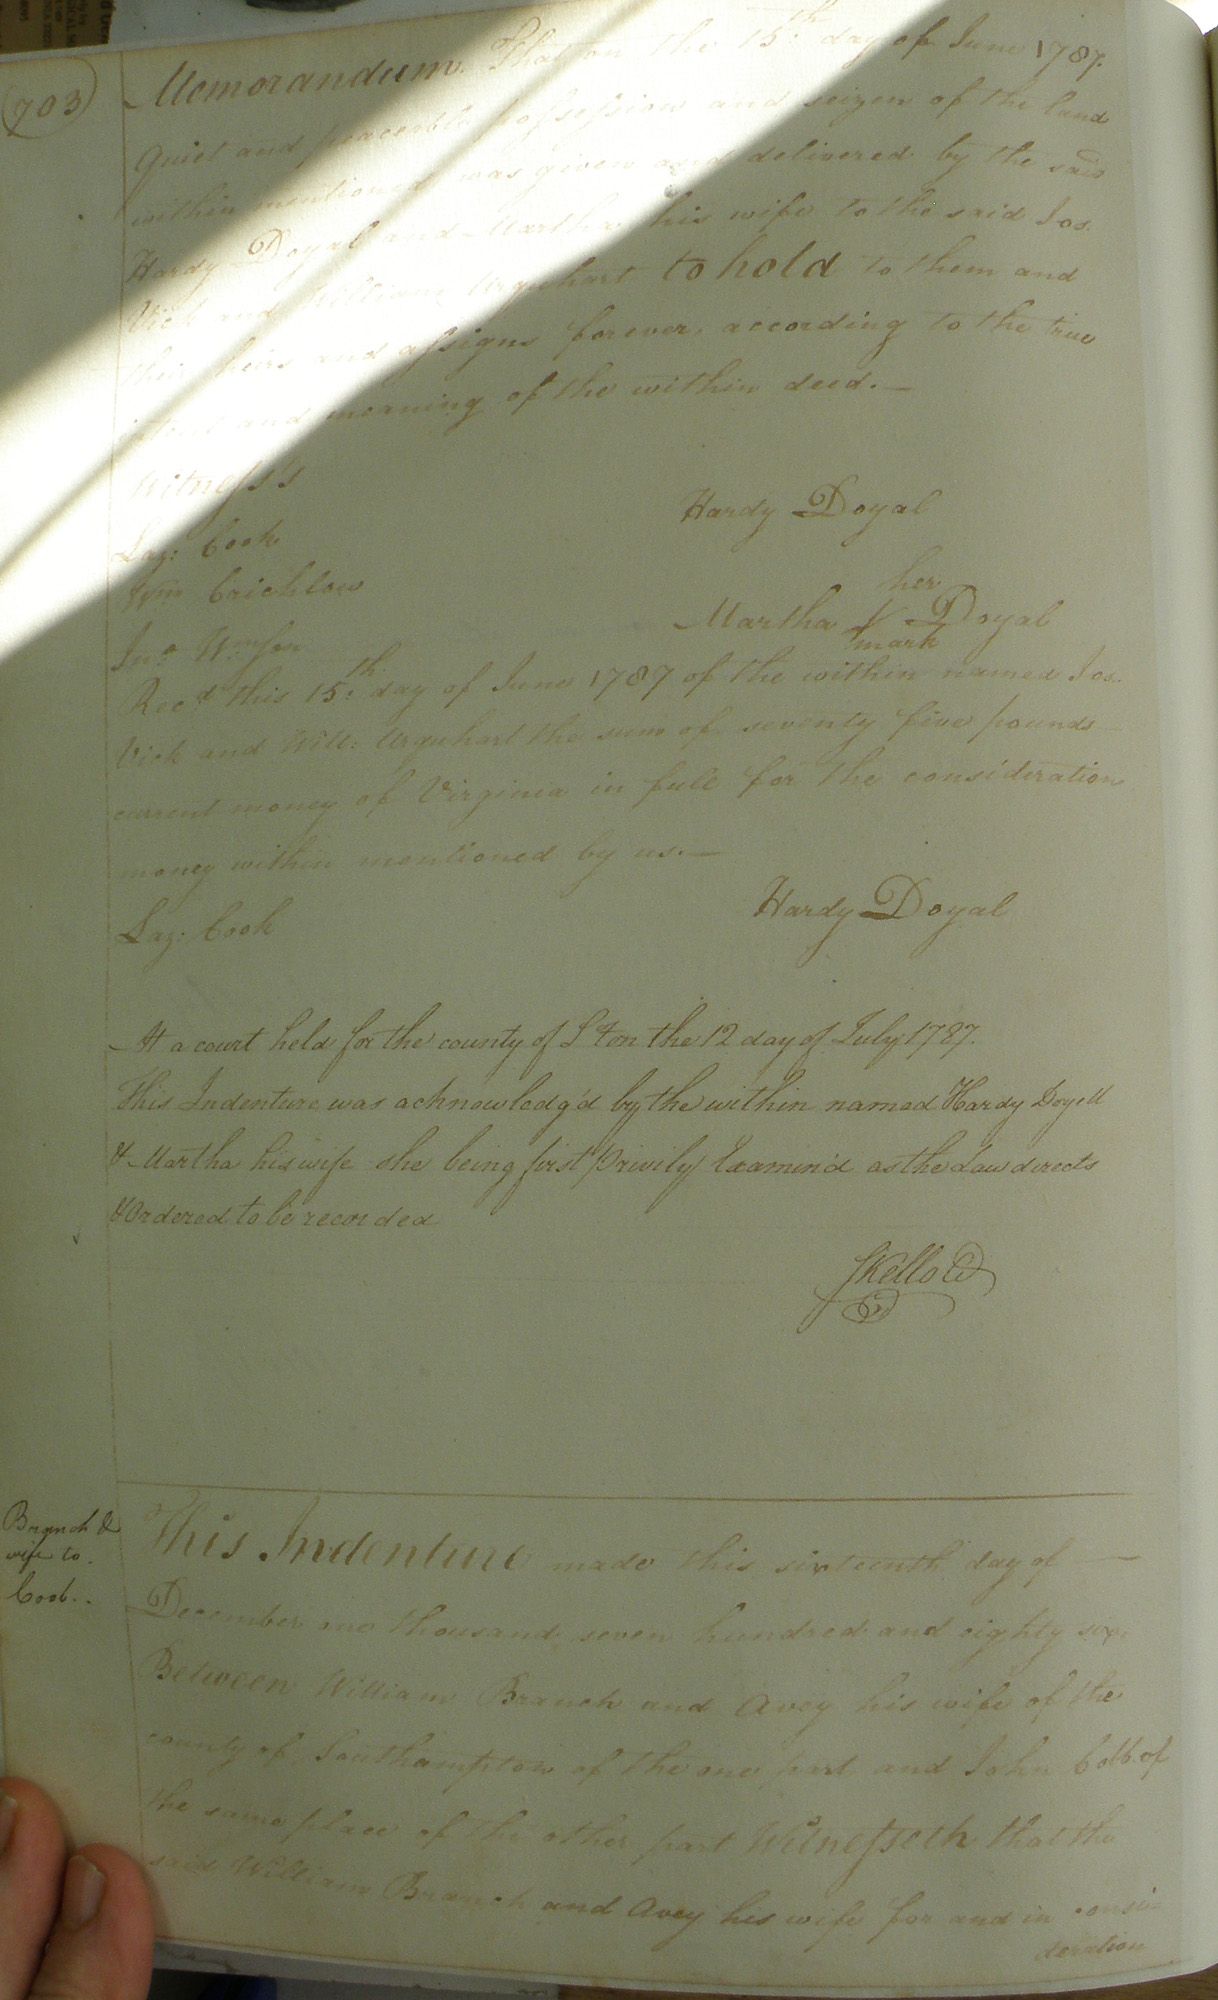 703
Memorandum. That on the 15th day of June 1787.
quiet and peaceable possession and seizen of the land
within mentioned was given and delivered by the said
Hardy Doyal and Martha his wife to the said Jos.
Vick and William Urquhart to hold to them and
their heirs and assigns forever, according to the true
intent and meaning of the within deed.—
Witness's
Laz: Cook
Wm Crichlow
Jno
Hardy Doyal
her
Martha X Doyal
mark
Recd this 15th day of June 1787 of the within named Jos.
Vick and Will: Urquhart the sum of seventy five pounds
current money of Virginia in full for the consideration
money within mentioned by us.—
Laz: Cook
Hardy Doyal
At a court held for the county of S'ton the 12 day of July 1787.
This Indenture was acknowledg'd by the within named Hardy Doyell
& Martha his wife she being first Privily Examin'd as the Law directs
& Ordered to be recorded
SKello Cl
Branch &
wife to
Cobb..
This Indenture made this sixteenth day of —
December one thousand seven hundred and eighty six
Between William Branch and Avey his wife of the
county of Southampton of the one part and John Cobb of
the same place of the other part Witnesseth that the
said William Branch and Avey his wife for and in consi-
deration